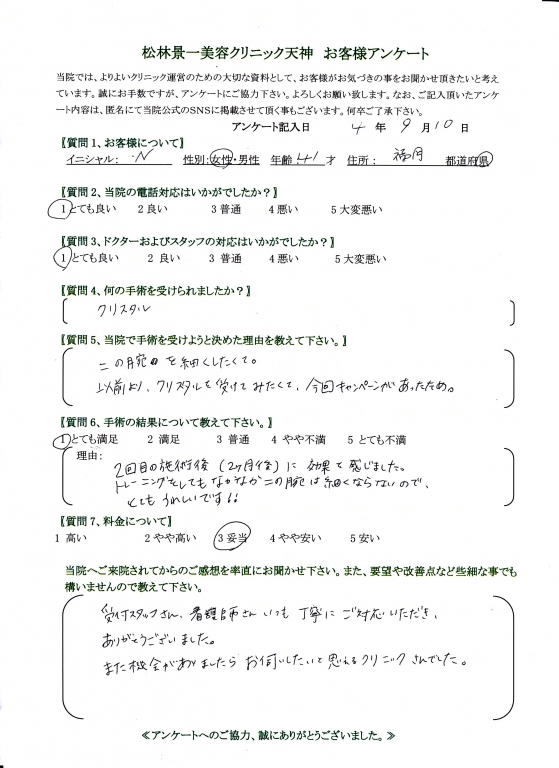 松林景一美容クリニック天神 お客様アンケート
当院では、よりよいクリニック運営のための大切な資料として、お客様がお気づきの事をお聞かせ頂きたいと考え
ています。誠にお手数ですが、アンケートにご協力下さい。よろしくお願い致します。なお、ご記入頂いたアンケ
ート内容は、匿名にて当院公式のSNSに掲載させて頂く事もございます。何卒ご了承下さい。
アンケート記入日 4 年 9 月 10 日
【質問1、お客様について】
イニシャル: N 性別:女性・男性 年齢 41 才 住所: 福岡 都道府県
【質問2、当院の電話対応はいかがでしたか?】
1とても良い 2 良い 3 普通 4 悪い 5 大変悪い
【質問3、ドクターおよびスタッフの対応はいかがでしたか?】
1とても良い 2 良い 3 普通 4 悪い 5 大変悪い
【質問4、何の手術を受けられましたか?】
クリスタル
【質問5、当院で手術を受けようと決めた理由を教えて下さい。】
二の腕を細くしたくて。
以前より、クリスタルを受けてみたくて、今回キャンペーンがあったため。
【質問6、手術の結果について教えて下さい。】
1とても満足 2 満足 3 普通 4 やや不満 5 とても不満
理由:
2回目の施術後(2ヶ月後)に効果を感じました。
トレーニングをしてもなかなか二の腕は細くならないので、
とてもうれしいです!!
【質問7、料金について】
1 高い 2 やや高い 3 妥当 4 やや安い 5 安い
当院へご来院されてからのご感想を率直にお聞かせ下さい。また、要望や改善点など些細な事でも
構いませんので教えて下さい。
受付スタッフさん、看護師さんいつも丁寧にご対応いただき、
ありがとうございました。
また機会がありましたらお伺いしたいと思えるクリニックさんでした。
≪アンケートへのご協力、誠にありがとうございました。≫